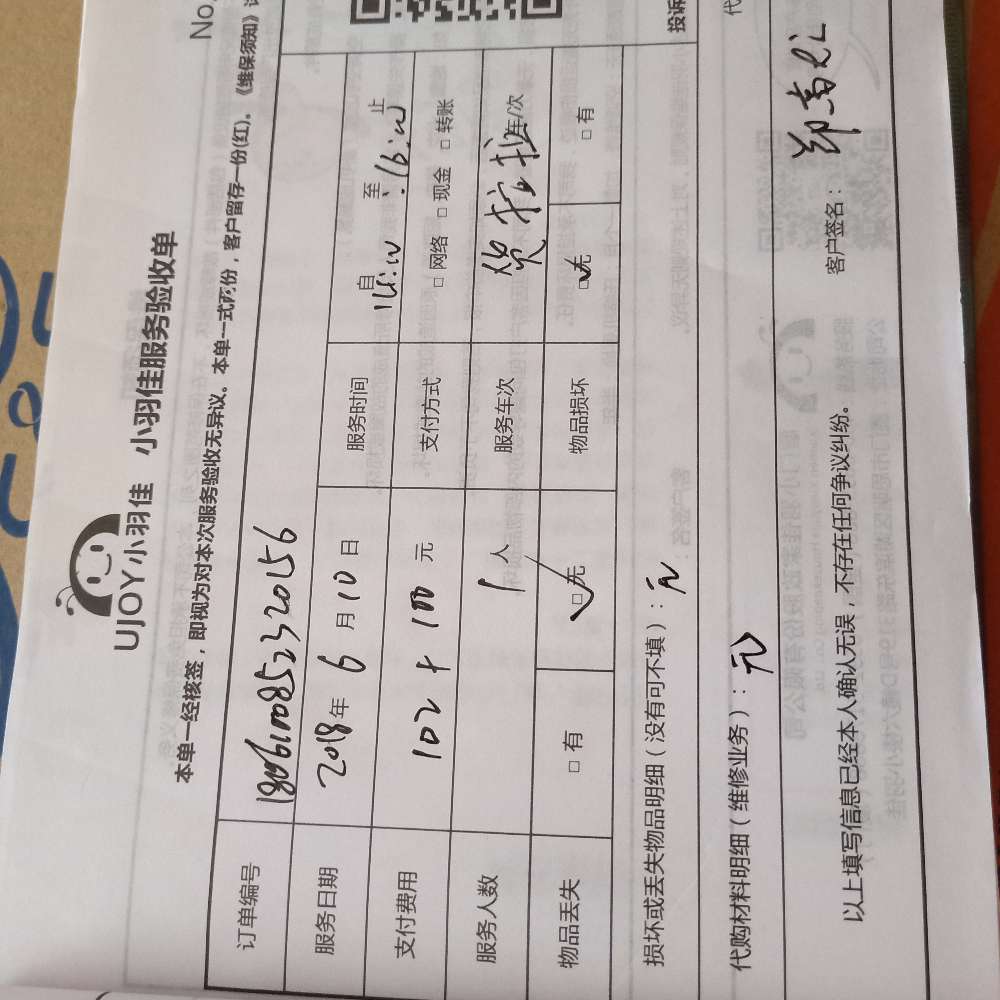 No.
UJOY小羽佳 小羽佳服务验收单
本单一经核签，即视为对本次服务验收无异议。本单一式两份，客户留存一份(红)。《维保须知》
订单编号
服务日期 2018年 6 月 10 日 服务时间 自 至 止
支付费用 102 + 100 元 支付方式 □ 网络 □ 现金 □ 转账
服务人数 1 人 服务车次 货拉拉 车/次
物品丢失 □ 有 □ 无 物品损坏 □ 无 □ 有
损坏或丢失物品明细（没有可不填）：无
投诉
代购材料明细（维修业务）：无
代
以上填写信息已经本人确认无误，不存在任何争议纠纷。 客户签名：